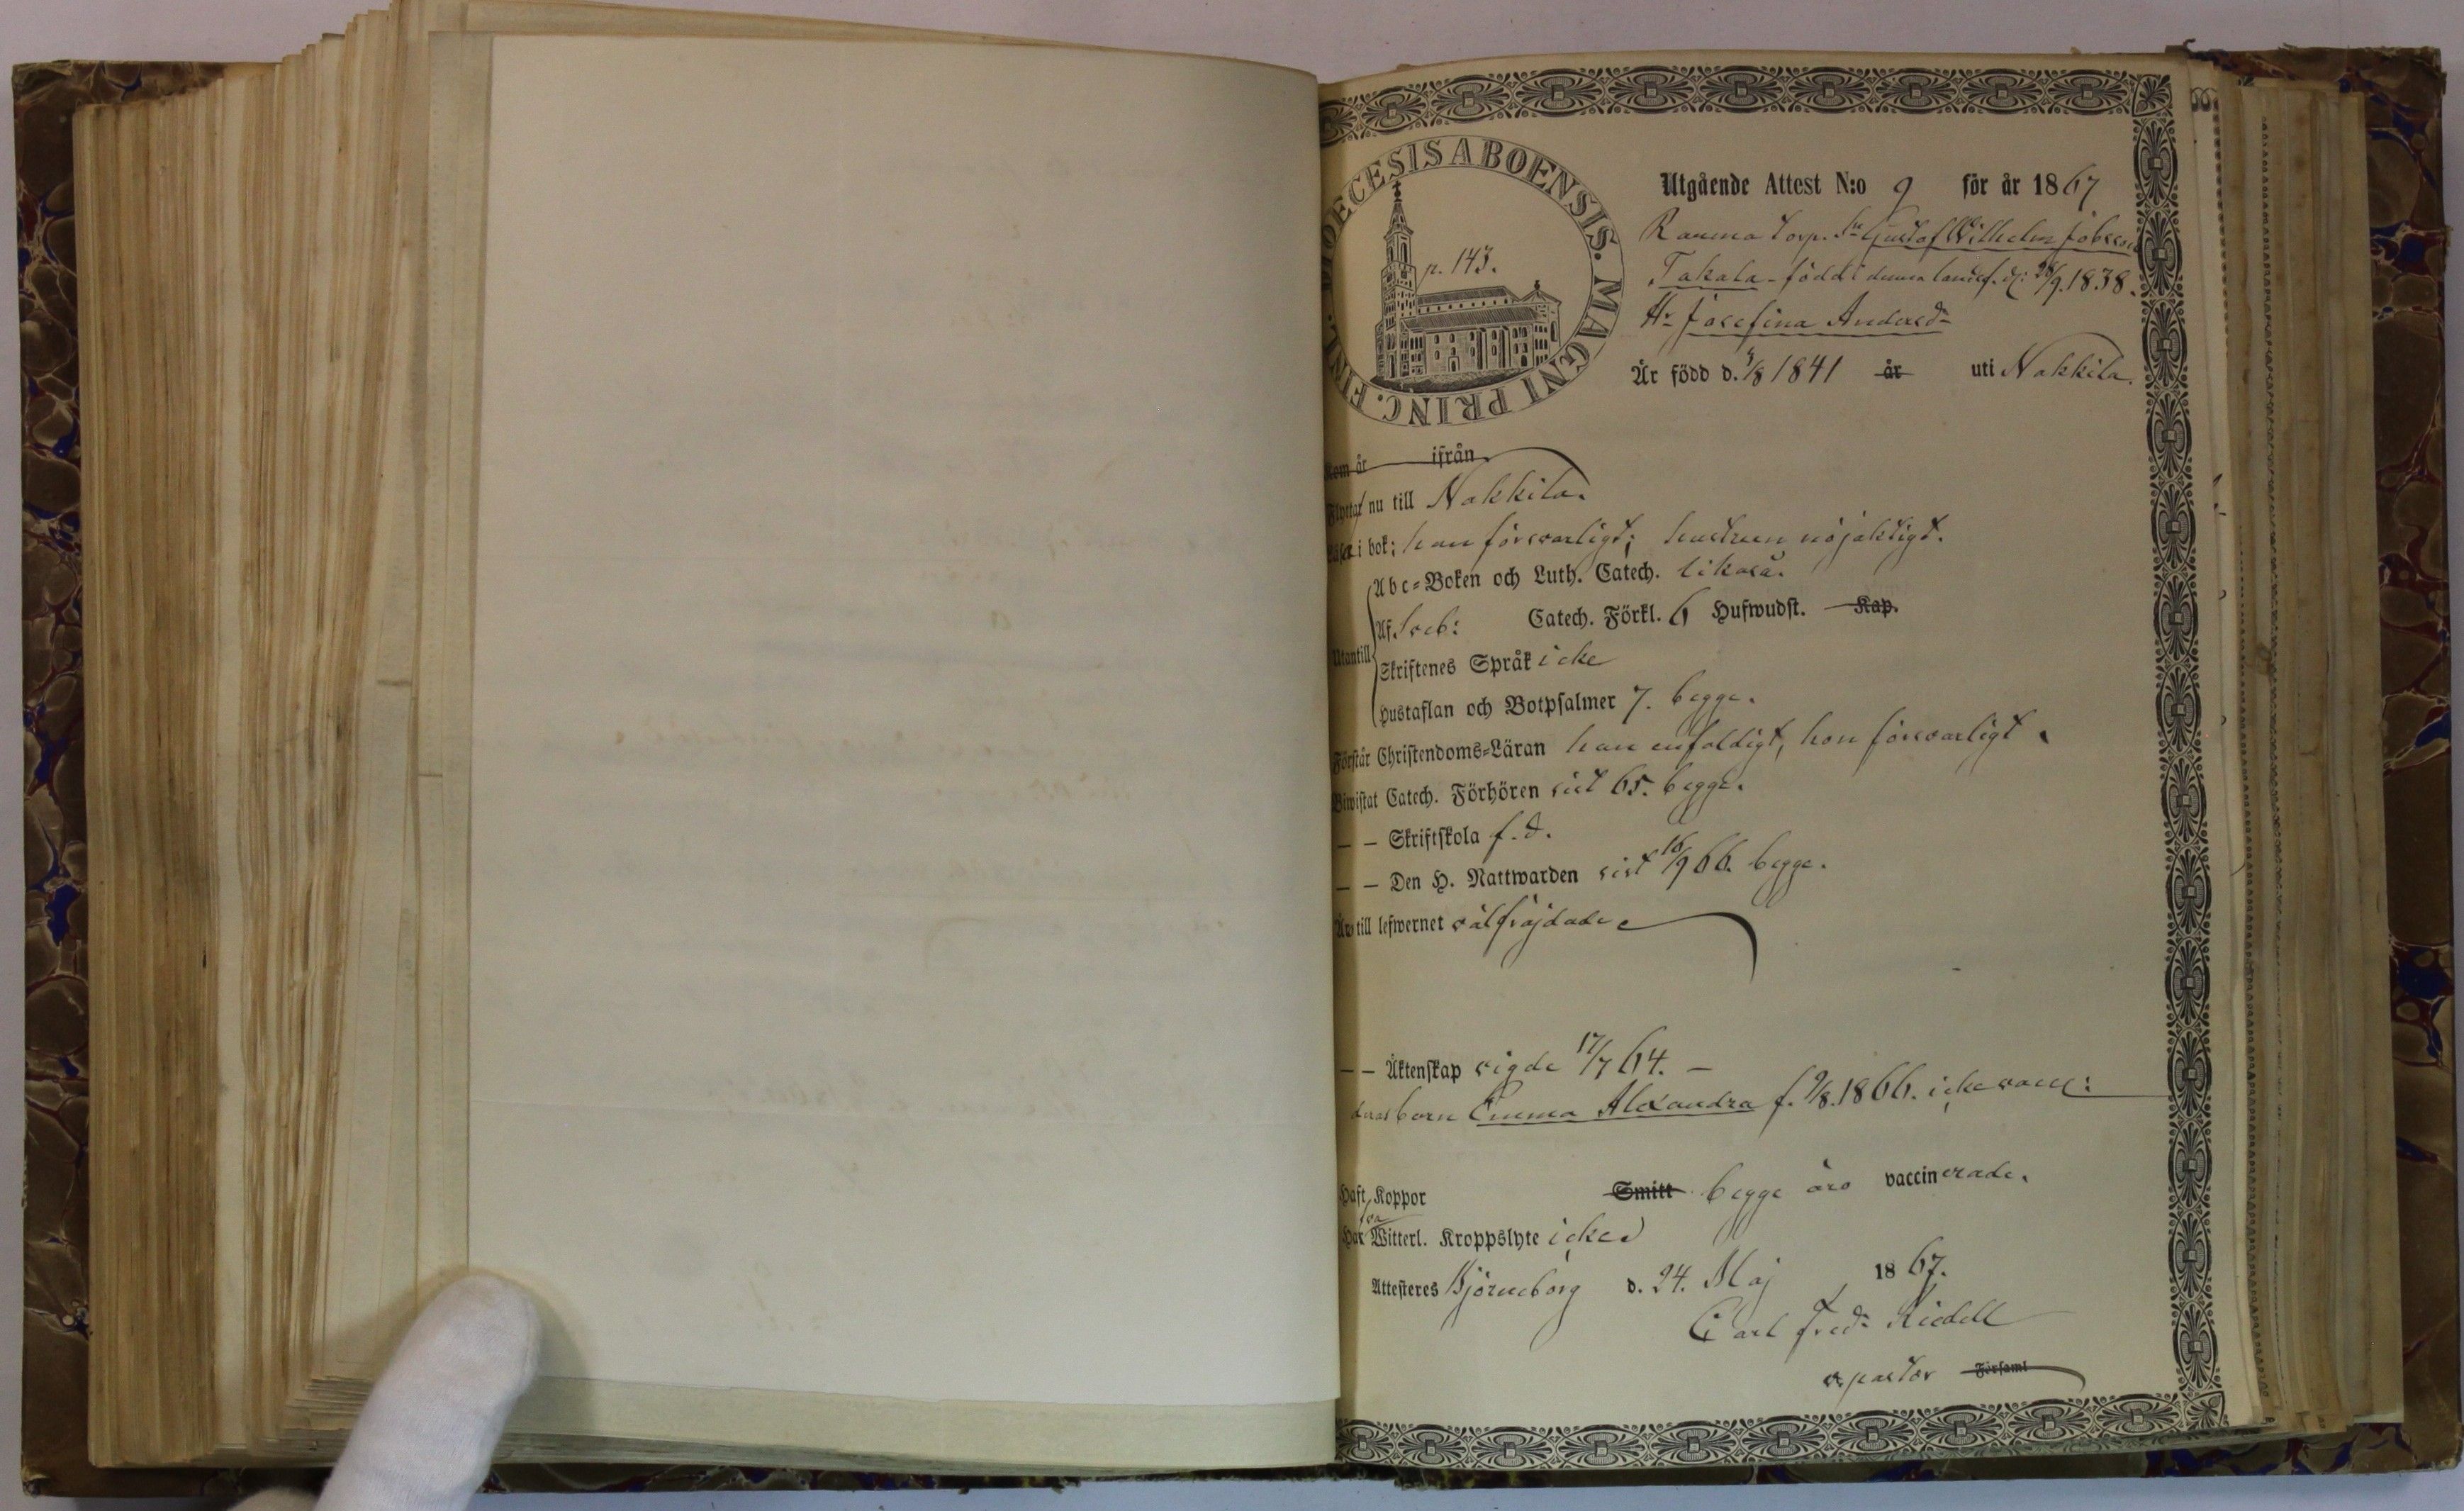 DIOECESIS ABOENSIS. MAGNI PRINC. FINL.
p. 143.
Utgående Attest N:o 9 för år 1867
Torp. Gustaf Wilhelm Jobsson
Takala född i denna landsf. d: 28/9. 1838.
Hr Josefina Andersdr
Är född d. 4/8 1841 år uti Nakkila.
Kom år ifrån
Flyttar nu till Nakkila.
Läser i bok; han försvarligt; hustrun nöjaktigt.
Abc=Boken och Luth. Catech. likaså.
Af Sveb: Catech. Förkl. 6 Hufwudst. Kap.
Utantill
Skriftenes Språk icke
Hustaflan och Botpsalmer 7. begge.
Förstår Christendoms=Läran han enfaldigt, hon försvarligt.
Biwistat Catech. Förhören sist 65. begge.
— — Skriftskola f. d.
— — Den H. Nattwarden sist 16/9 66. begge.
Äro till lefwernet välfräjdade
— — Äktenskap vigde 17/7 64. —
deras barn Emma Alexandra f. 9/8. 1866. icke vacc:
Haft Koppor Smitt begge äro vaccinerade.
Witterl. Kroppslyte icke
Attesteres Björneborg d. 24. Maj 1867.
Carl Fredr Riedell
v. pastor Församl